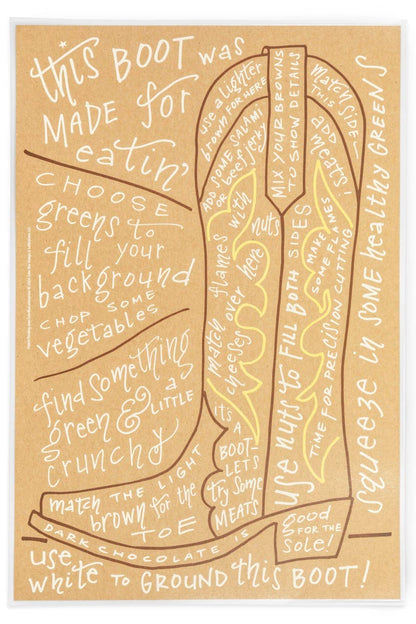 this BOOT was
MADE for
eatin'
CHOOSE
greens to
fill your
background
CHOP SOME
vegetables
find something
green & a LITTLE
crunchy
use a lighter
brown FOR HERE
ADD SOME SALAMI
OR beef jerky
MIX YOUR BROWNS
TO SHOW DETAILS
match SIDE—
THIS
ADD
meats!
match flames with nuts
cheeses over here
MAKE
SOME FLAMES
TIME FOR PRECISION CUTTING
use nuts to FILL BOTH SIDES
squeeze in SOME healthy GREENS
it's
A
BOOT—
LET'S
try some
MEATS
match THE LIGHT
brown for the
TOE
DARK CHOCOLATE IS
good
FOR THE
sole!
use
white TO GROUND this BOOT!